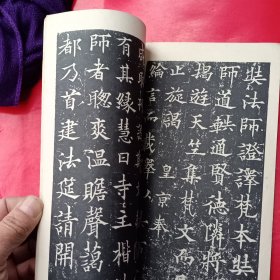 奘法師證譯梵本奘
師道軼通賢德隣將
揭遊天竺集梵文而
止旋謁 皇京奉
綸言
有其緣慧日寺主楷
師者聰爽溫贍聲藹
都乃首建法筵請開